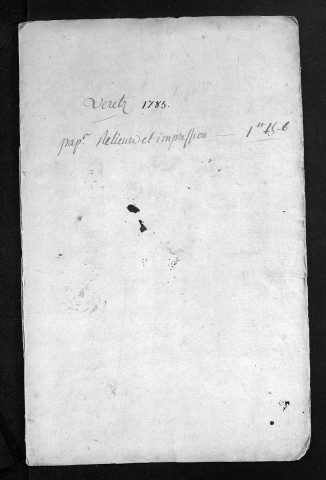 Veretz 1783.
pap.r Relieure et impression — 1tt 15-6